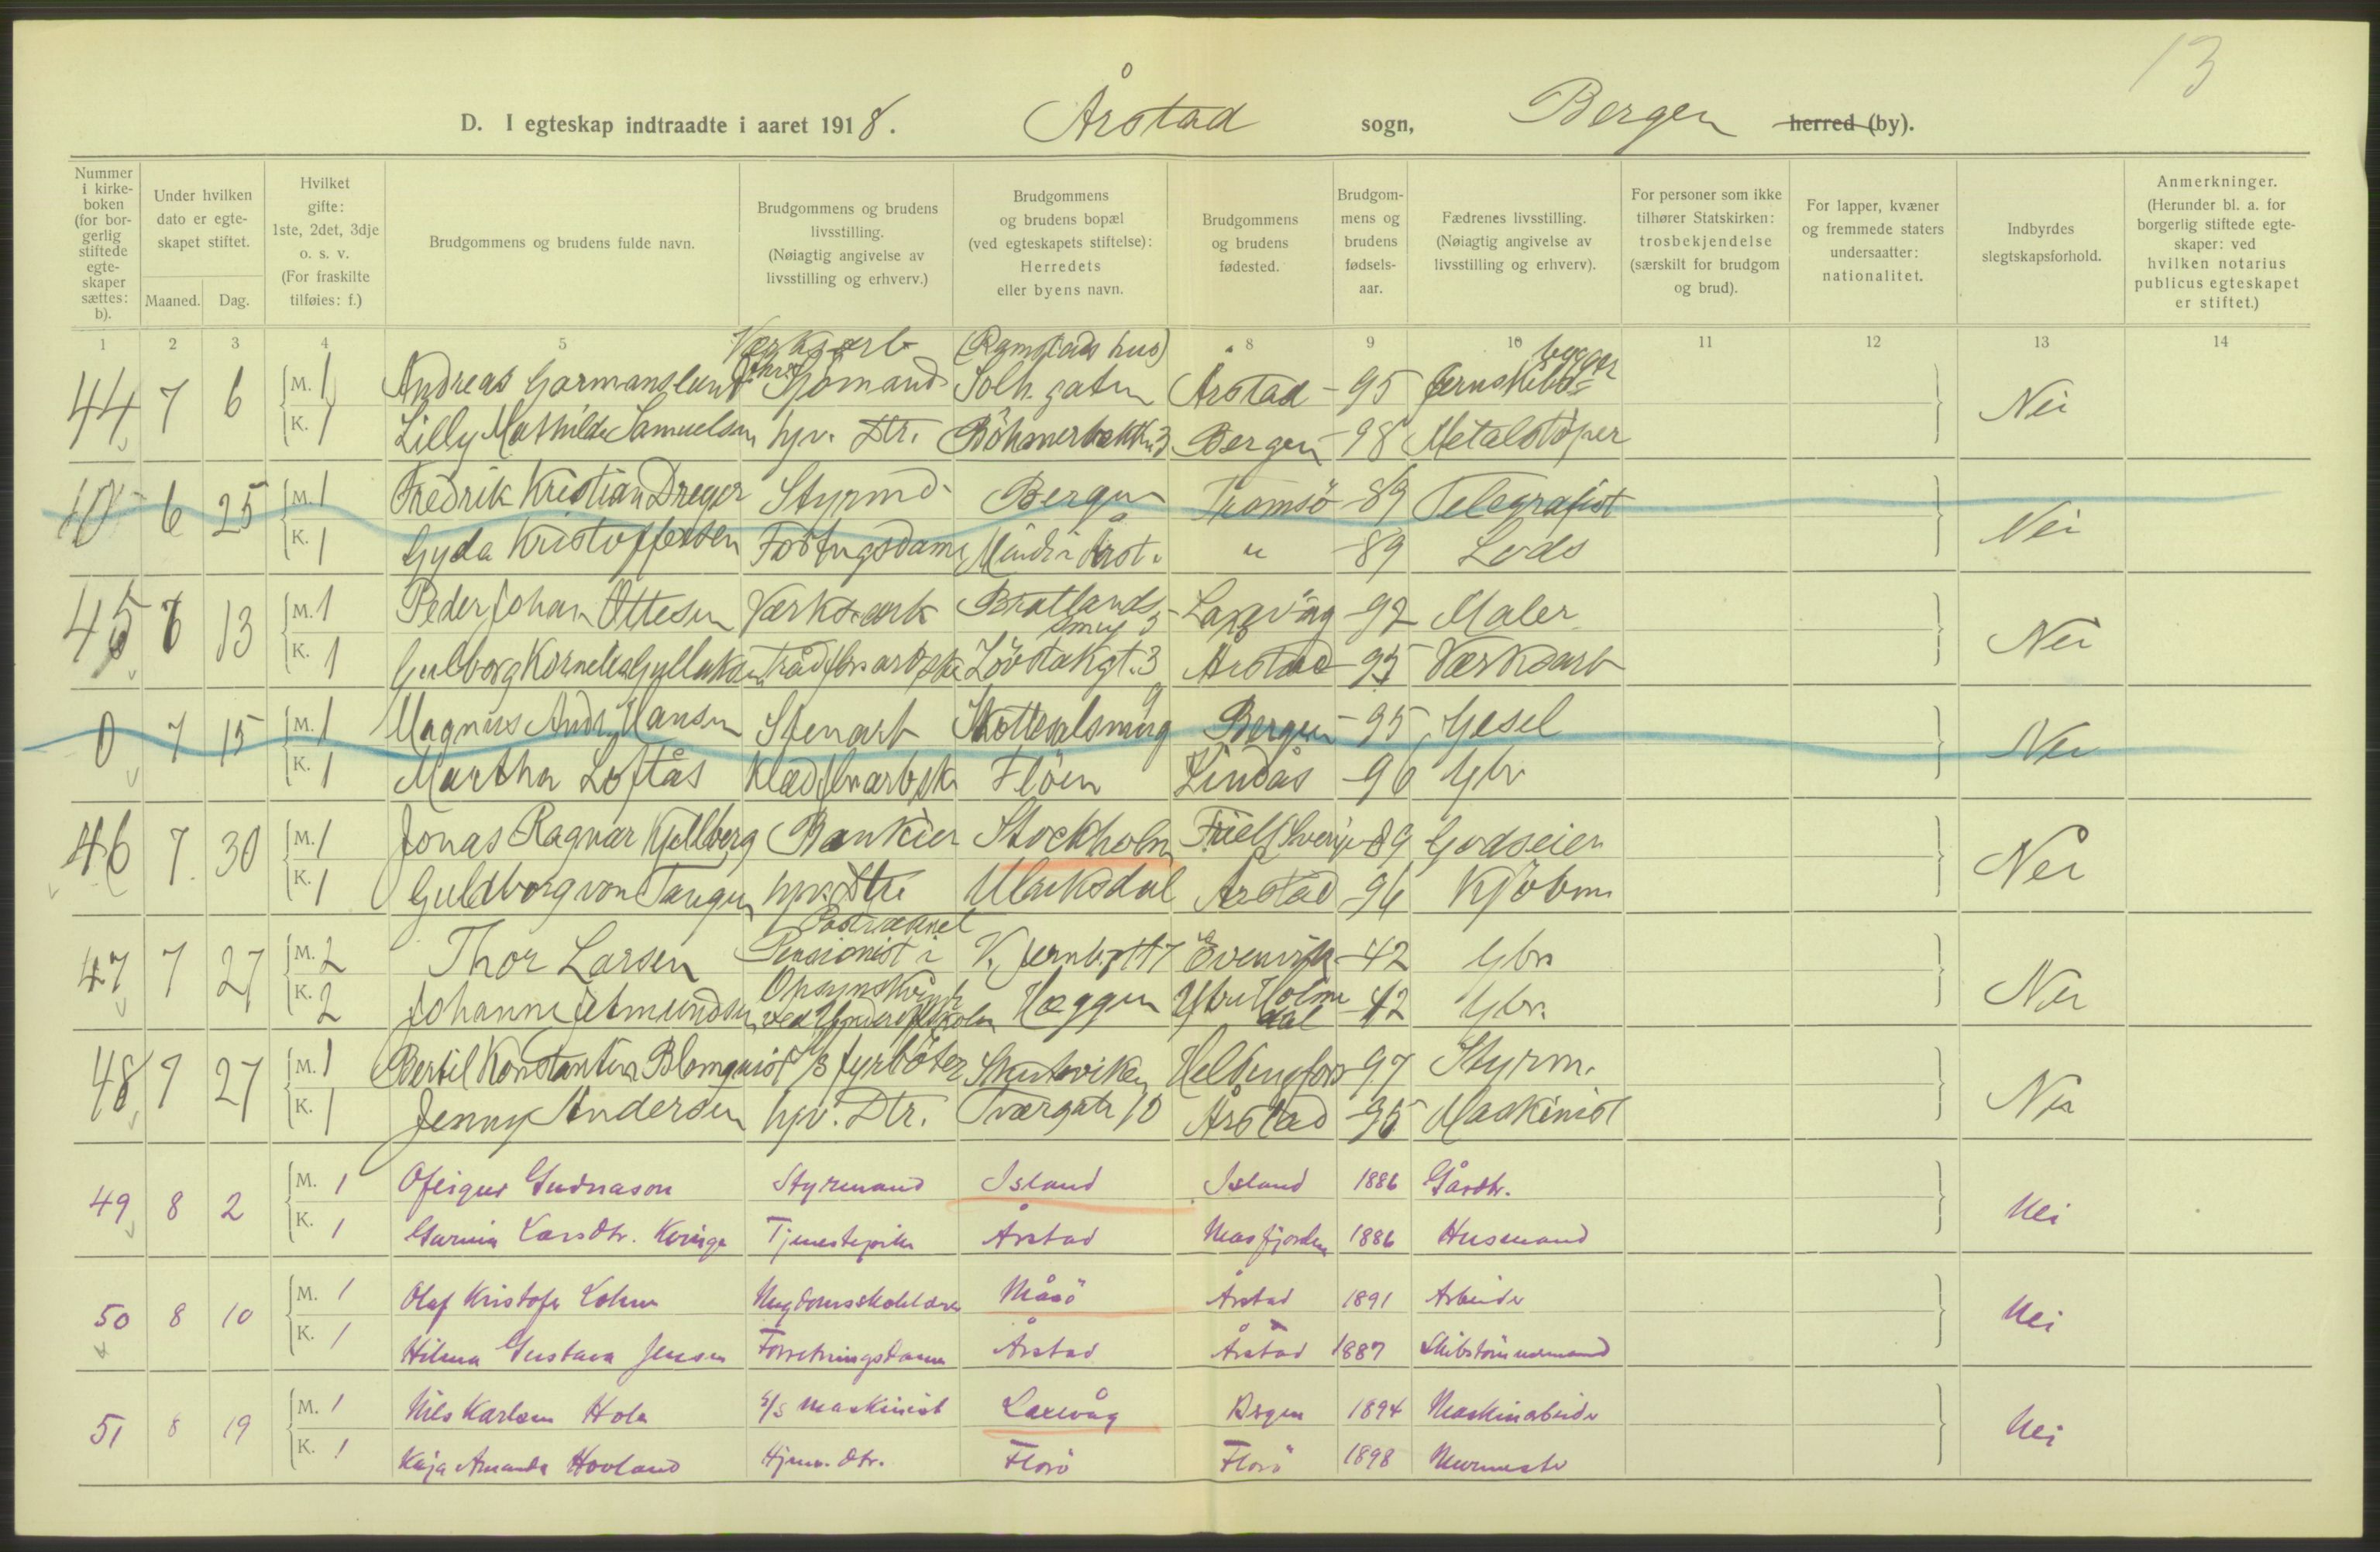 13
D. I egteskap indtraadte i aaret 1918. Årstad sogn, Bergen herred (by).
Nummer i kirkeboken (for borgerlig stiftede egteskaper sættes: b).
Under hvilken dato er egteskapet stiftet.
Maaned. Dag.
Hvilket gifte: 1ste, 2det, 3dje o. s. v. (For fraskilte tilføies: f.)
Brudgommens og brudens fulde navn.
Brudgommens og brudens livsstilling. (Nøiagtig angivelse av livsstilling og erhverv.)
Brudgommens og brudens bopæl (ved egteskapets stiftelse): Herredets eller byens navn.
Brudgommens og brudens fødested.
Brudgommens og brudens fødselsaar.
Fædrenes livsstilling. (Nøiagtig angivelse av livsstilling og erhverv).
For personer som ikke tilhører Statskirken: trosbekjendelse (særskilt for brudgom og brud).
For lapper, kvæner og fremmede staters undersaatter: nationalitet.
Indbyrdes slegtskapsforhold.
Anmerkninger. (Herunder bl. a. for borgerlig stiftede egteskaper: ved hvilken notarius publicus egteskapet er stiftet.)
1 2 3 4 5 8 9 10 11 12 13 14
Værksarb (Ramstads hus) bygger
44 7 6 M. 1 Andreas Garmanslund Sjömand Solh. gaten Årstad - 95 Jernskibs= Nei
K. 1 Lilly Mathilde Samuelsen hjv. Dtr. Böhmerbakkn 3 Bergen - 98 Metalstöper
6 25 M. 1 Fredrik Kristian Dreyer Styrmd Bergen Tromsö - 89 Telegrafist Nei
K. 1 Gyda Kristoffersen " - 89 Lods
45 7 13 M. 1 Peder Johan Ottesen Værks.arb Bratlands- Laxevåg - 92 Maler Nei
smug 3
K. 1 Gulborg Kornelia Løvstakgt. 3 Årstad - 95 Værksarb
0 7 15 M. 1 Magnus Andr. Hansen Stenarb Skottesalsmug 9 Bergen - 95 Gesel Nei
K. 1 Martha Loftås Klædesfbr arbske Flöen Lindås - 96 Gbr
46 7 30 M. 1 Jonas Ragnar Kjellberg Bankier Stockholm - 89 Godseier Nei
K. 1 Guldborg von Tangen hjv. Dtr Ulriksdal Årstad - 96 Kjöbm.
Postvæsnet
47 7 27 M. 2 Thor Larsen Pensionist i V. Jernb.gt 47 Evenvik - 42 Gbr. Nei
K. 2 Johanne Amundsen Opsynskvinde Hæggen Ytre Holmedal - 42 Gbr.
48 7 27 M. 1 Bertil Konstantin Blomquist S/S fyrböter Skuteviken Helsingfors - 97 Styrm. Nei
K. 1 Jenny Andersen hjv. Dtr. Tværgatn 10 Årstad - 95 Maskinist
49 8 2 M. 1 Ofeigur Gudnason Styrmand Island Island 1886 Gårdbr. Nei
K. 1 Larsdtr. Kvinge Tjenestepike Årstad Masfjorden 1886 Husmand
50 8 10 M. 1 Olaf Kristofer Måsö Årstad 1891 Arbeider Nei
K. 1 Hilma Gustava Jensen Forretningsdame Årstad Årstad 1887 Skibstömmermand
51 8 19 M. 1 Nils Karlsen Hole S/S Maskinist Laxevåg Bergen 1894 Maskinarbeider Nei
K. 1 Kaja Amanda Hovland Hjemv. dtr. Florö Florö 1898 Murmester